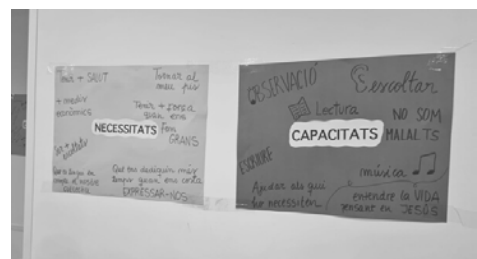 Tenir + SALUT
Tornar al
meu pis
+ medis
econòmics
Tenir + força
quan ens
fem
GRANS
NECESSITATS
Que ens dediquin més
temps quan ens costa
EXPRESSAR-NOS
OBSERVACIÓ
escoltar
Lectura
NO SOM
MALALTS
CAPACITATS
ESCRIURE
música
Ajudar als qui
ho necessiten
entendre la VIDA
pensant en JESÚS